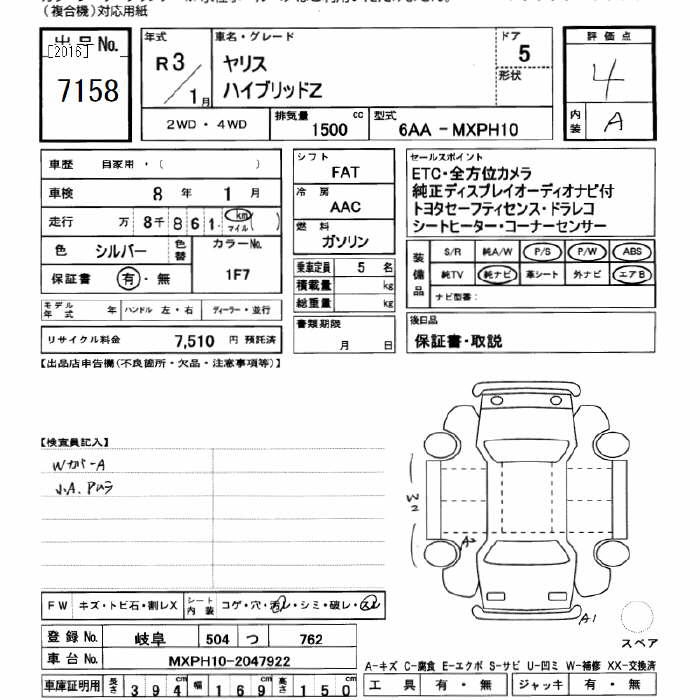 （複合機）対応用紙
出品No.
[2016]
7158
年式
R3/1月
車名・グレード
ヤリス
ハイブリッドZ
ドア
5
形状
評価点
4
内装
A
2WD・4WD
排気量
1500 cc
型式
6AA－MXPH10
車歴 自家用・( )
車検 8年 1月
走行 万 8千 8 6 1 km マイル ( )
色 シルバー 色替
カラーNo.
1F7
保証書 有・無
モデル年式 年 ハンドル 左・右 ディーラー・並行
リサイクル料金 7,510 円 預託済
シフト
FAT
冷房
AAC
燃料
ガソリン
乗車定員 5 名
積載量 kg
総重量 kg
書類期限
月 日
セールスポイント
ETC・全方位カメラ
純正ディスプレイオーディオナビ付
トヨタセーフティセンス・ドラレコ
シートヒーター・コーナーセンサー
装備品
S/R 純A/W P/S P/W ABS
純TV 純ナビ 革シート 外ナビ エアB
ナビ型番：
後日品
保証書・取説
【出品店申告欄(不良箇所・欠品・注意事項等)】
【検査員記入】
Wカバ-A
J.A. Pムラ
W2
A2
A1
スペア
FW キズ・トビ石・割レX
シート内装 コゲ・穴・汚レ・シミ・破レ・スレ
登録No. 岐阜 504 つ 762
車台No. MXPH10-2047922
車庫証明用 長さ 394cm 幅 169cm 高さ 150cm
A-キズ C-腐食 E-エクボ S-サビ U-凹ミ W-補修 XX-交換済
工具 有・無 ジャッキ 有・無